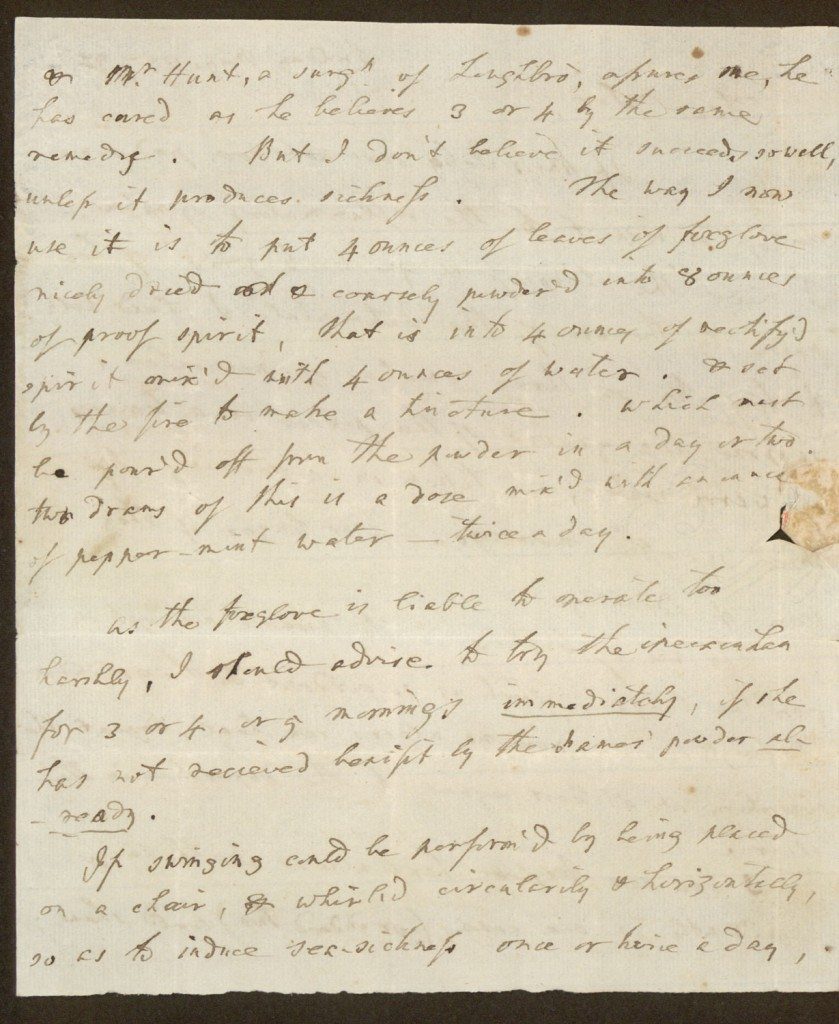 & Mr. Hunt, a surgn of Loughbro', assures me, he
has cured as he believes 3 or 4 by the same
remedy. But I don't believe it succeeds so well,
unless it produces sickness. The way I now
use it is to put 4 ounces of leaves of foxglove
nicely dried & coarsely powder'd into 8 ounces
of proof spirit, that is into 4 ounces of rectify'd
spirit mix'd with 4 ounces of water. & set
by the fire to make a tincture. which must
be pour'd off from the powder in a day or two.
two drams of this is a dose mix'd with an ounce
of pepper-mint water - twice a day.
as the foxglove is liable to operate too
harshly, I should advise to try the ipecacuanha
for 3 or 4 or 5 mornings immediately, if she
has not recieved benifit by the James' powder al-
-ready.
If swinging could be perform'd by being placed
on a chair, & whirl'd circularily & horizontally,
so as to induce sea-sickness once or twice a day,